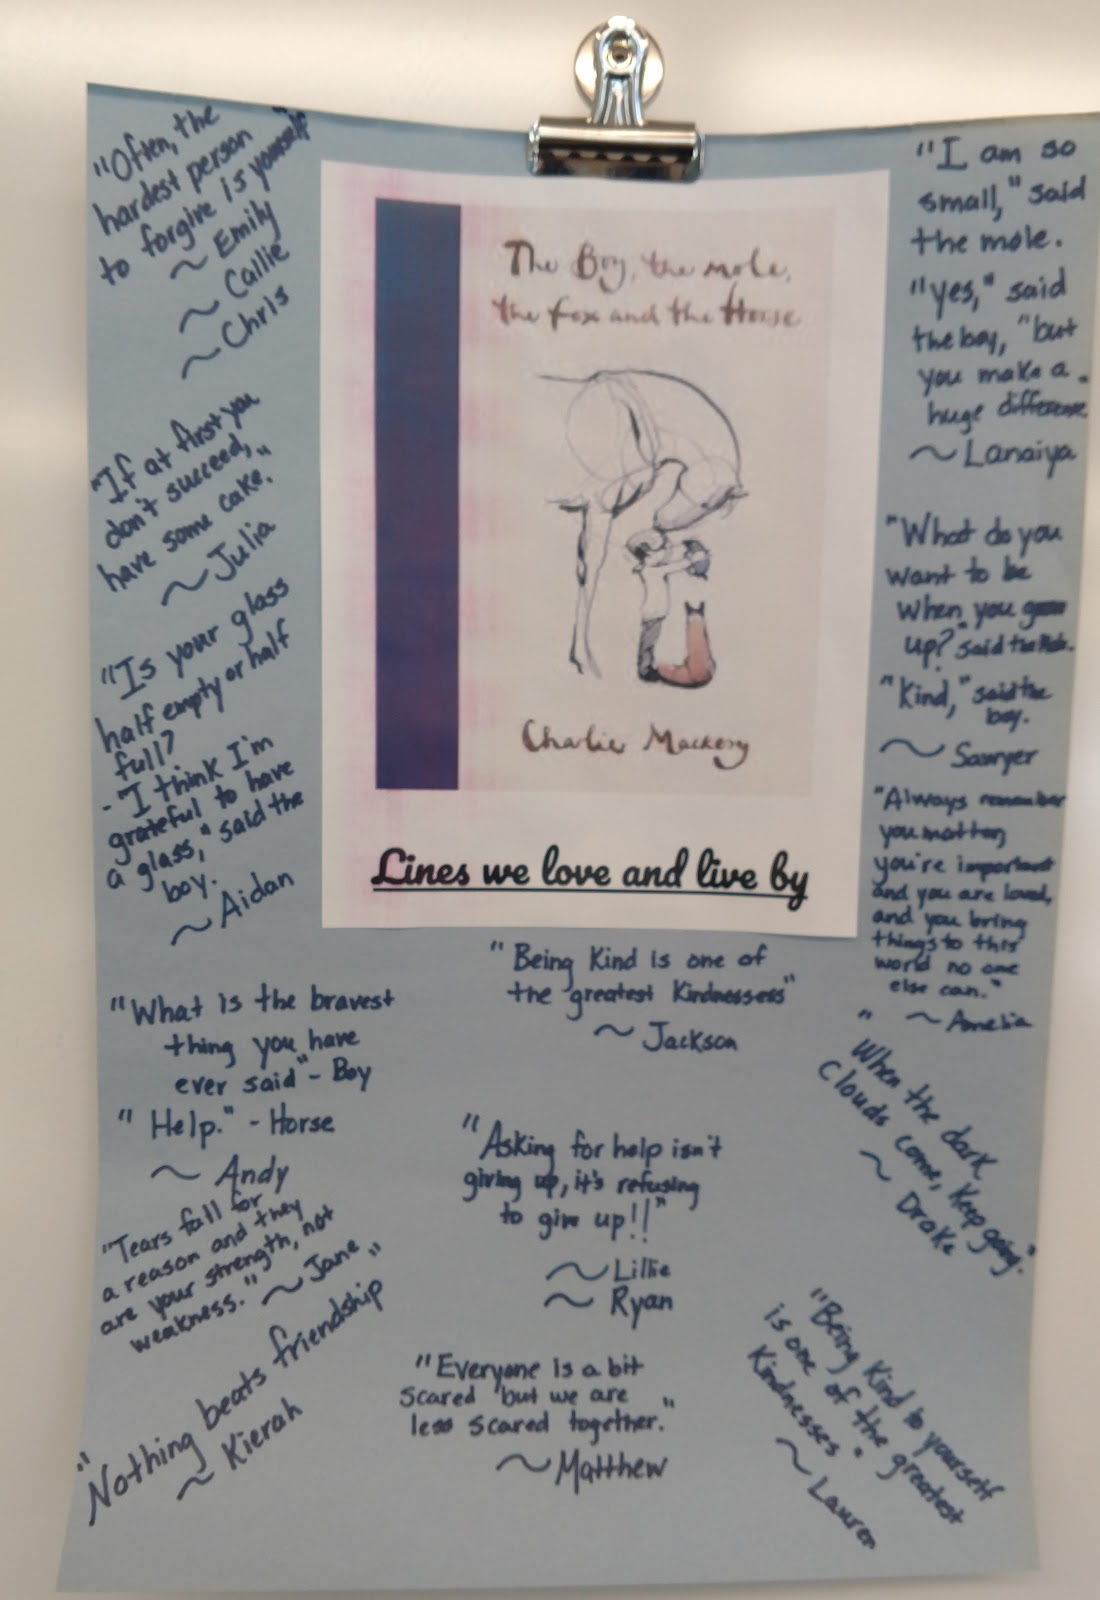 "Often, the
hardest person
to forgive is yourself"
~ Emily
~ Callie
~ Chris
"If at first you
don't succeed,
have some cake."
~ Julia
"Is your glass
half empty or half
full?
- "I think I'm
grateful to have
a glass," said the
boy.
~ Aidan
"What is the bravest
thing you have
ever said" - Boy
"Help." - Horse
~ Andy
"Tears fall for
a reason and they
are your strength, not
weakness." ~ Jane
"Nothing beats friendship"
~ Kierah
The Boy, the mole,
the fox and the Horse
Charlie Mackesy
Lines we love and live by
"Being Kind is one of
the greatest Kindnessess"
~ Jackson
"Asking for help isn't
giving up, it's refusing
to give up!!"
~ Lillie
~ Ryan
"Everyone is a bit
scared but we are
less scared together."
~ Matthew
"I am so
small," said
the mole.
"yes," said
the boy, "but
you make a
huge difference.
~ Lanaiya
"What do you
want to be
when you grow
up?" said the Mole.
"Kind," said the
boy.
~ Sawyer
"Always remember
you matter,
you're important
and you are loved,
and you bring
things to this
world no one
else can."
~ Amelia
"When the dark
Clouds come, Keep going."
~ Drake
"Being Kind to yourself
is one of the greatest
Kindnesses"
~ Lauren